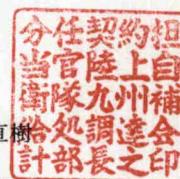 分任契約担
当官陸上自
衛隊九州補
給処調達会
計部長之印
直樹